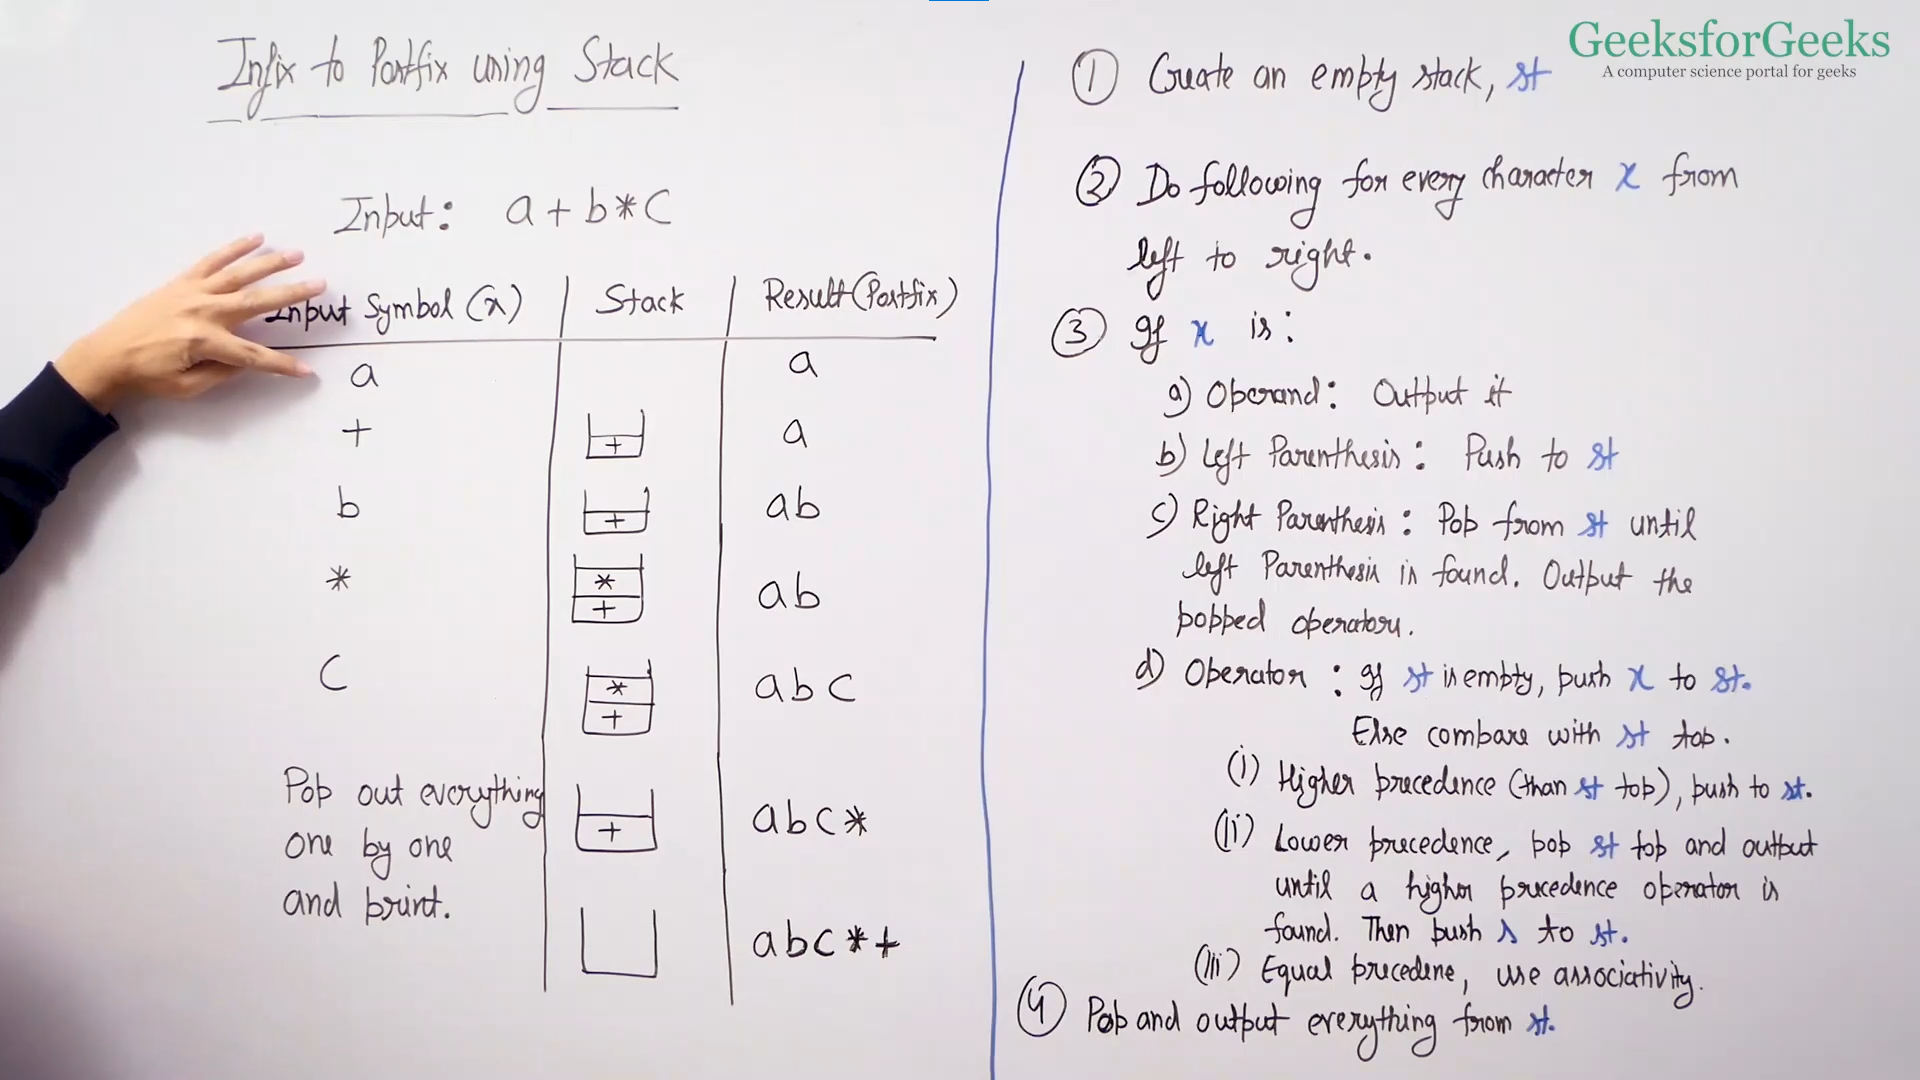 Infix to Postfix using Stack
Input: a + b * c
Input Symbol (x) Stack Result (Postfix)
a a
+ + a
b + ab
* * ab
+
c * abc
+
Pop out everything
one by one
and print.
+ abc*
abc*+
GeeksforGeeks
A computer science portal for geeks
① Create an empty stack, st
② Do following for every character x from
left to right.
③ If x is:
a) Operand: Output it
b) Left Parenthesis: Push to st
c) Right Parenthesis: Pop from st until
left Parenthesis is found. Output the
popped operators.
d) Operator: If st is empty, push x to st.
Else compare with st top.
(i) Higher precedence (than st top), push to st.
(ii) Lower precedence, pop st top and output
until a higher precedence operator is
found. Then push s to st.
(iii) Equal precedene, use associativity.
④ Pop and output everything from st.